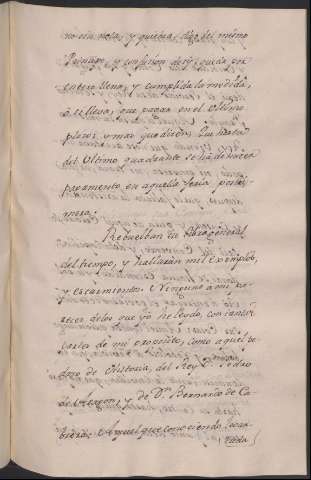 no sin nota, y quiebra, digo del mismo
Principe, y confusion de si; queda por
entero lleno, y cumplida la medida,
que pagar en el Ultimo
plazo; y mas quadrada. Que hasta
del Ultimo quadrante se ha de hacer
pagamento en aquella feria postri-
mera;
Rebuelban su Libro general
del tiempo, y hallarán mil exemplos,
y escarmientos. Ninguno a mi pa-
recer delos que yo he leydo, con tantas
partes de mi proposito, como aquel pe-
dazo de Historia, del Rey D. Pedro
de Aragon, y de Dn. Bernardo de Ca-
brera; Aquel que conociendo la va-